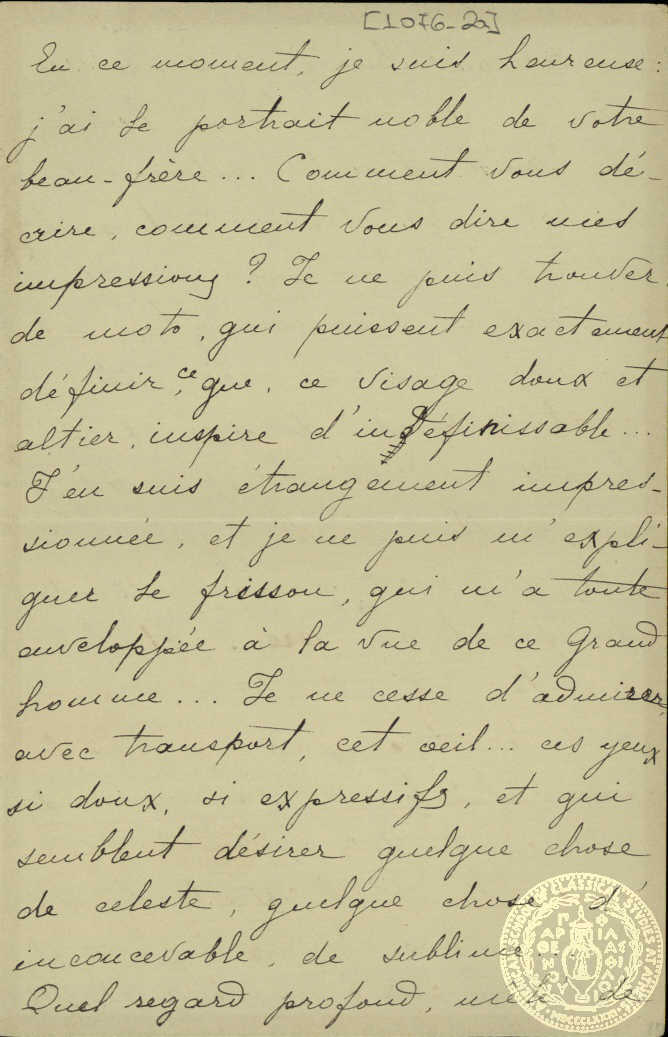 [1076-2a]
En ce moment, je suis heureuse :
j'ai le portrait noble de votre
beau-frère... Comment vous dé-
crire, comment vous dire mes
impressions ? Je ne puis trouver
de mots, qui puissent exactement
définir, ce que, ce visage doux et
altier, inspire d'indéfinissable...
J'en suis étrangement impres-
sionnée, et je ne puis m'expli-
quer le frisson, qui m'a toute
enveloppée à la vue de ce Grand
homme... Je ne cesse d'admirer,
avec transport, cet oeil... ces yeux
si doux, si expressifs, et qui
semblent désirer quelque chose
de celeste, quelque chose d'
inconcevable, de sublime...
Quel regard profond, mêlé de
AMERICAN SCHOOL OF CLASSICAL STUDIES AT ATHENS
ΠΑΡΘΕΝΟΥ ΦΙΛΑΣ ΓΑΙΑ
MDCCCLXXXI